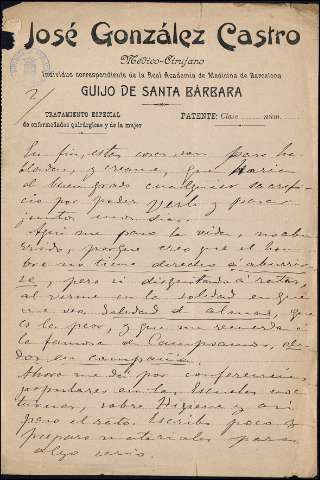 José González Castro
Médico-Cirujano
Individuo correspondiente de la Real Academia de Medicina de Barcelona
GUIJO DE SANTA BÁRBARA
2/
TRATAMIENTO ESPECIAL
de enfermedades quirúrgicas y de la mujer
PATENTE: Clase
En fin, estas cosas son para ha-
bladas, y créame, que haria
de buen grado cualquier sacrifi-
cio por poder verle y pasar
juntos unos dias.
Aqui me paso la vida, no abu-
rrido, porque creo que el hom-
bre no tiene derecho á aburrir-
se, pero si disgustado á ratos,
al verme en la soledad en que
me veo. Soledad de almas, que
es la peor, y que me recuerda á
la famosa de Campoamor,
en compañia.
Ahora me dá por conferencias
populares en las Escuelas noc-
turnas, sobre Higiene y asi
paso el rato. Escribo poco y
preparo materiales para
algo serio.